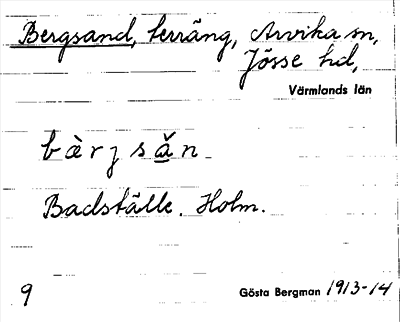 Bergsand, terräng, Arvika sn,
Jösse hd,
Värmlands län
bæ̀rjsăn
Badställe. Holm.
9
Gösta Bergman 1913-14